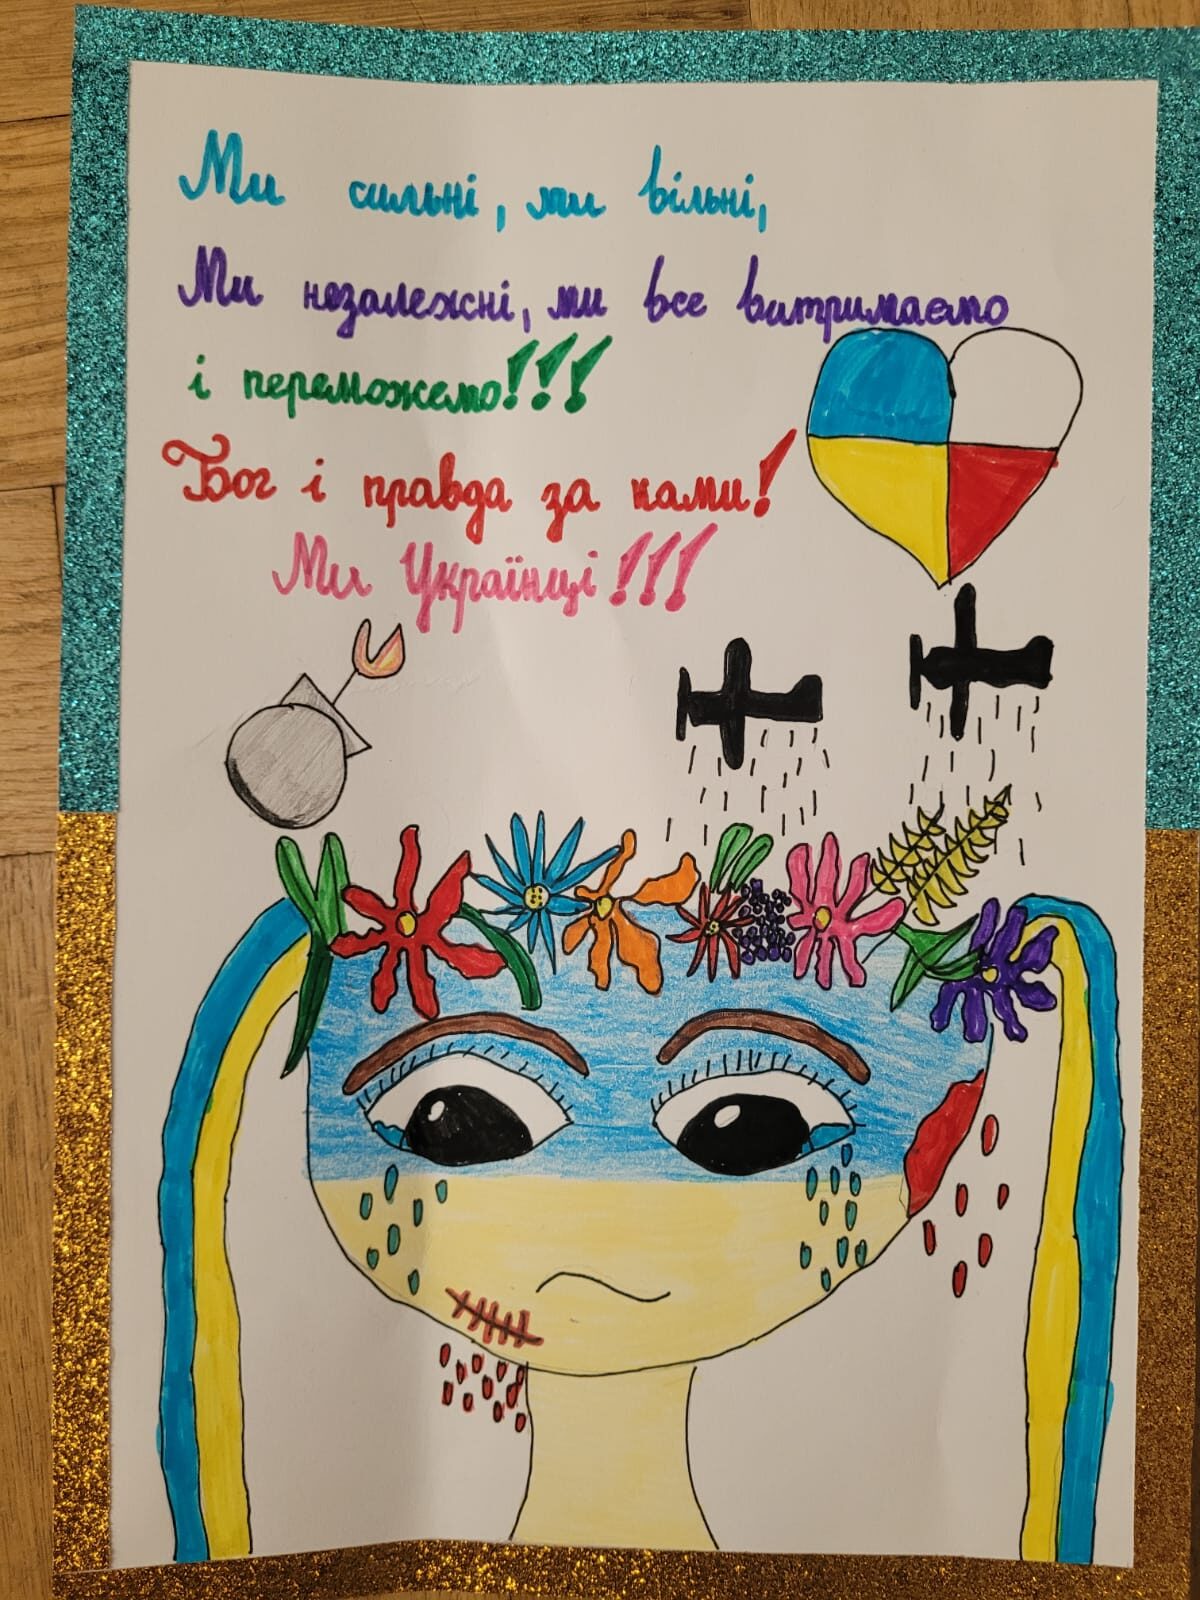 Ми сильні, ми вільні,
Ми незалежні, ми все витримаємо
і переможемо!!!
Бог і правда за нами!
Ми Українці!!!